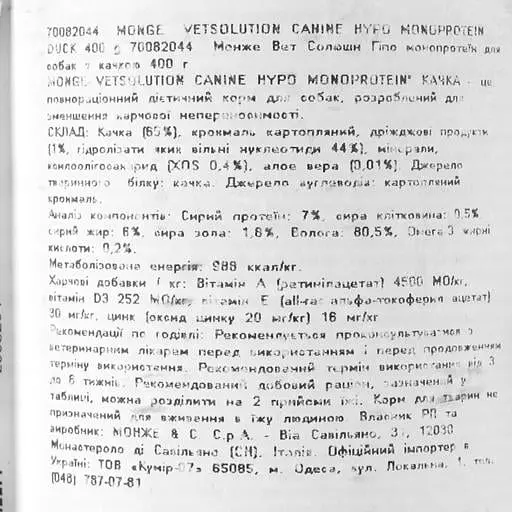 70082044 MONGE VETSOLUTION CANINE HYPO MONOPROTEIN
DUCK 400 g 70082044 Монже Вет Солюшн Гіпо монопротеїн для
собак з качкою 400 г
MONGE VETSOLUTION CANINE HYPO MONOPROTEIN КАЧКА - це
повнораціонний дієтичний корм для собак, розроблений для
зменшення харчової непереносимості.
СКЛАД: Качка (65%), крохмаль картопляний, дріжджові продукти
(1%, гідролізати яких вільні нуклеотиди 44%), мінерали,
ксилоолігосахарид (XOS 0,4%), алое вера (0,01%). Джерело
тваринного білку: качка. Джерело вуглеводів: картопляний
крохмаль.
Аналіз компонентів: Сирий протеїн: 7%, сира клітковина: 0,5%
сирий жир: 6%, сира зола: 1,8%, Волога: 80,5%, Омега-3 жирні
кислоти: 0,2%.
Метаболізована енергія: 988 ккал/кг.
Харчові добавки / кг: Вітамін А (ретинілацетат) 4500 МО/кг,
вітамін D3 252 МО/кг, вітамін Е (all-rac альфа-токоферил ацетат)
30 мг/кг, цинк (оксид цинку 20 мг/кг) 16 мг/кг
Рекомендації по годівлі: Рекомендується проконсультуватися з
ветеринарним лікарем перед використанням і перед продовженням
терміну використання. Рекомендований термін використання від 3
до 8 тижнів. Рекомендований добовий раціон, зазначений у
таблиці, можна розділити на 2 прийоми їжі. Корм для тварин не
призначений для вживання в їжу людиною. Власник РП та
виробник: МОНЖЕ & С. С.р.А. - Віа Савільяно, 31, 12030
Монастероло ді Савільяно (CN), Італія. Офіційний імпортер в
Україні: ТОВ «Кумір-07» 65085, м. Одеса, вул. Локальна, 1, тел.
(048) 787-07-81